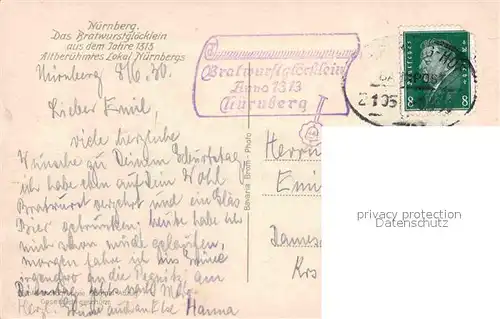 Nürnberg.
Das Bratwurstglöcklein
aus dem Jahre 1313
Altberühmtes Lokal Nürnbergs
Bratwurstglöcklein
Anno 1313
Nürnberg
8
8
Nürnberg 8/6.30.
Lieber Emil,
viele herzliche
Wünsche zu Deinem Geburtstag
ich habe eben auf dein Wohl
Bratwurst verzehrt und ein Glas
Bier getrunken, heute habe ich
mich schon müde gelaufen,
morgen fahre ich ins
irgendwo an die Pegnitz am
Herzl. Grüße auch an Else Hanna
Bavaria Brom-Photo
Herrn
Emi
Krs
privacy protection
Datenschutz